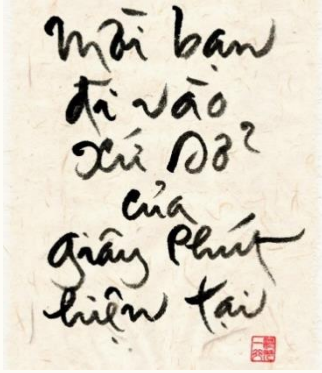 mời bạn
đi vào
xứ sở
của
giây phút
hiện tại